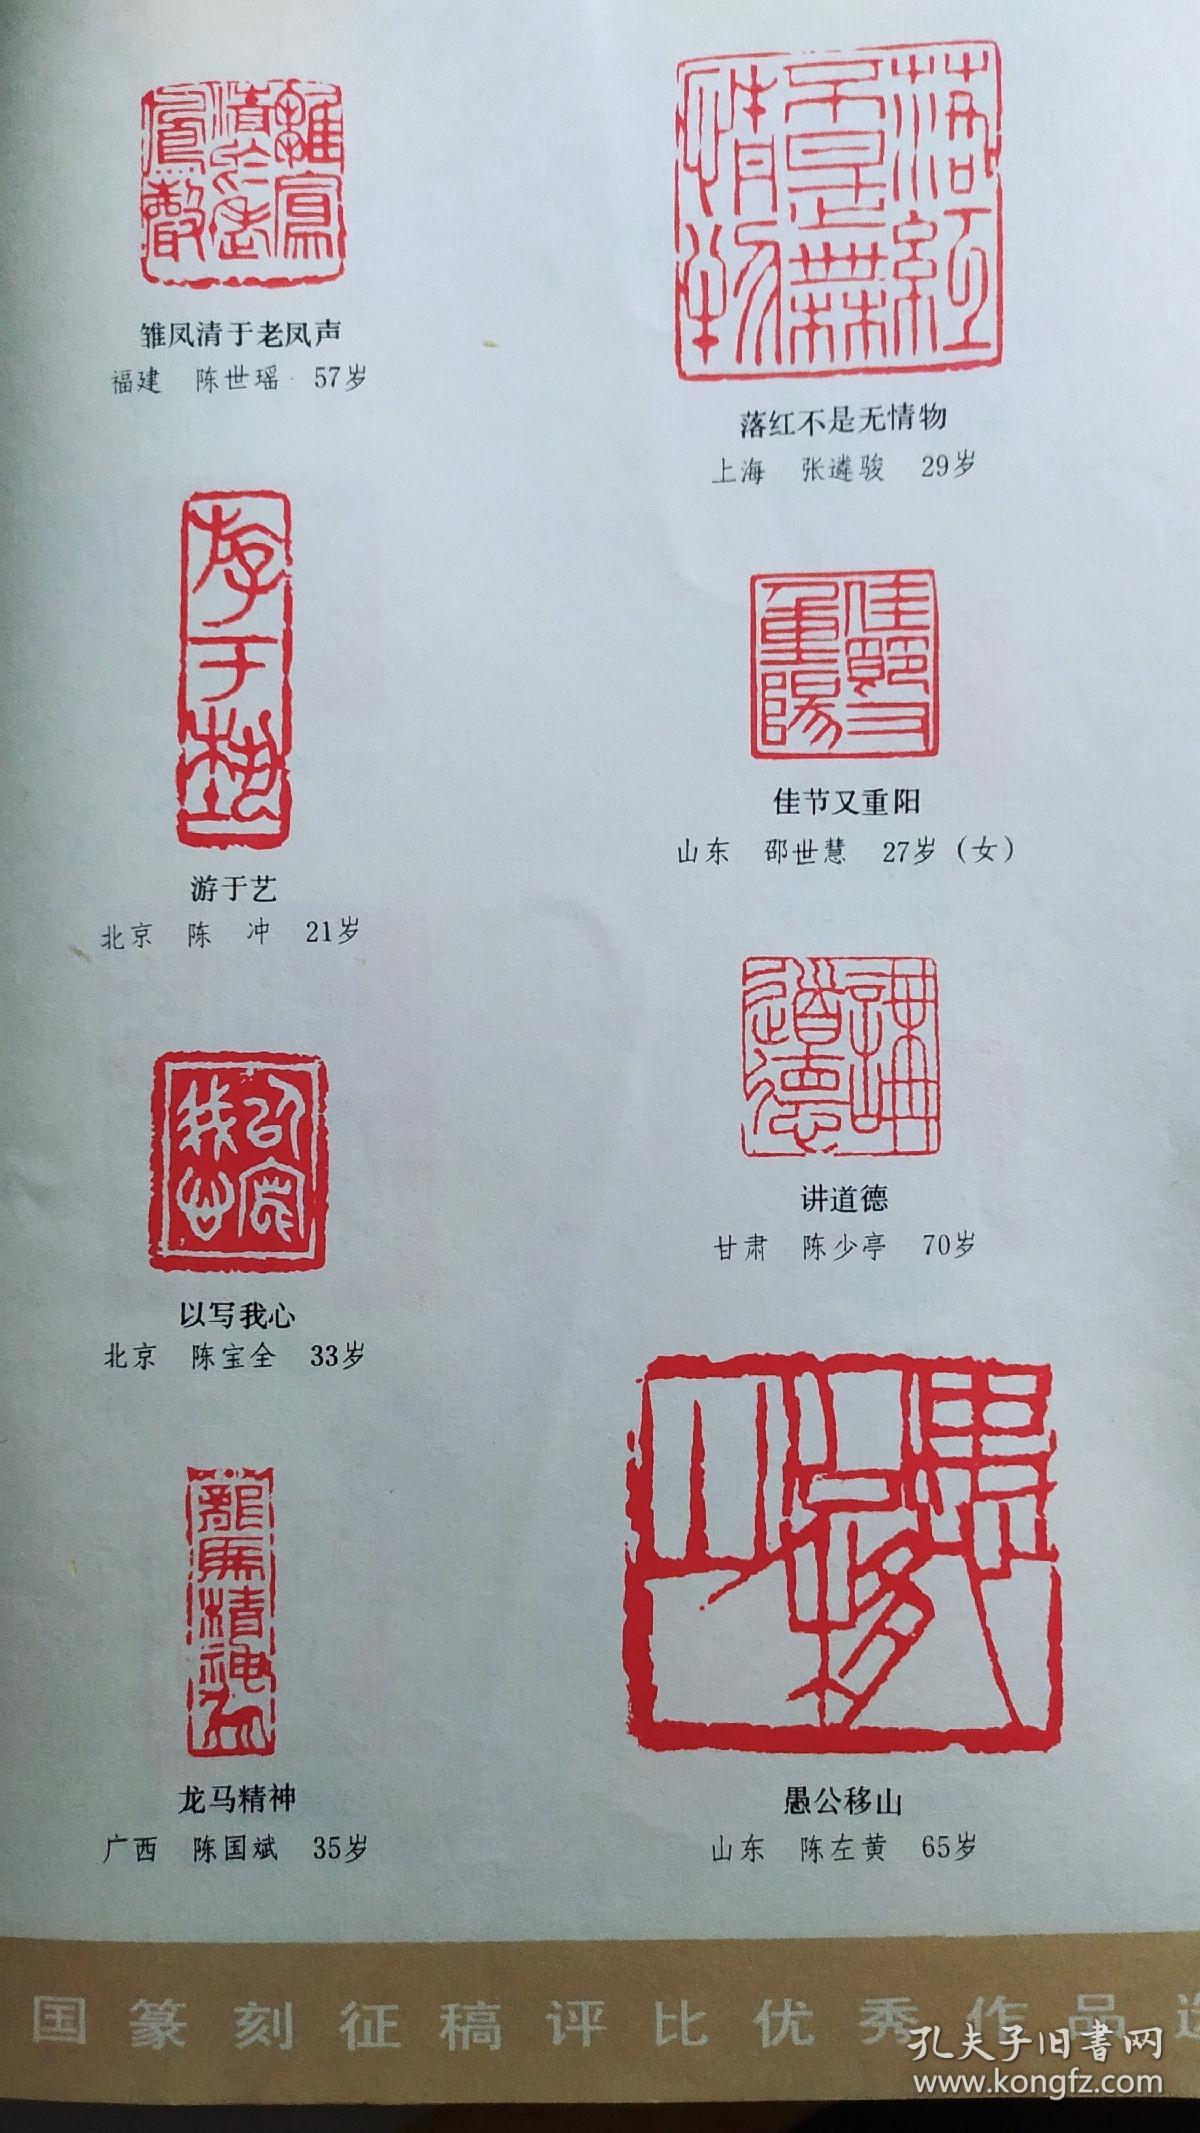 雏凤清于老凤声
福建 陈世瑶 57岁
游于艺
北京 陈 冲 21岁
以写我心
北京 陈宝全 33岁
龙马精神
广西 陈国斌 35岁
落红不是无情物
上海 张遴骏 29岁
佳节又重阳
山东 邵世慧 27岁（女）
讲道德
甘肃 陈少亭 70岁
愚公移山
山东 陈左黄 65岁
国篆刻征稿评比优秀作品选
孔夫子旧書网
www.kongfz.com